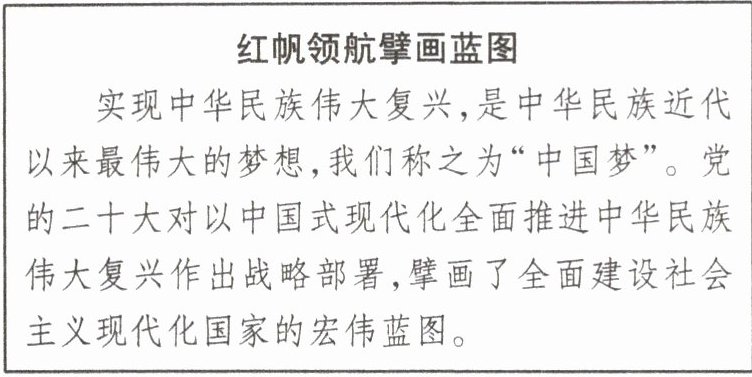 红帆领航擘画蓝图
实现中华民族伟大复兴,是中华民族近代
以来最伟大的梦想,我们称之为“中国梦”。党
的二十大对以中国式现代化全面推进中华民族
伟大复兴作出战略部署,擘画了全面建设社会
主义现代化国家的宏伟蓝图。